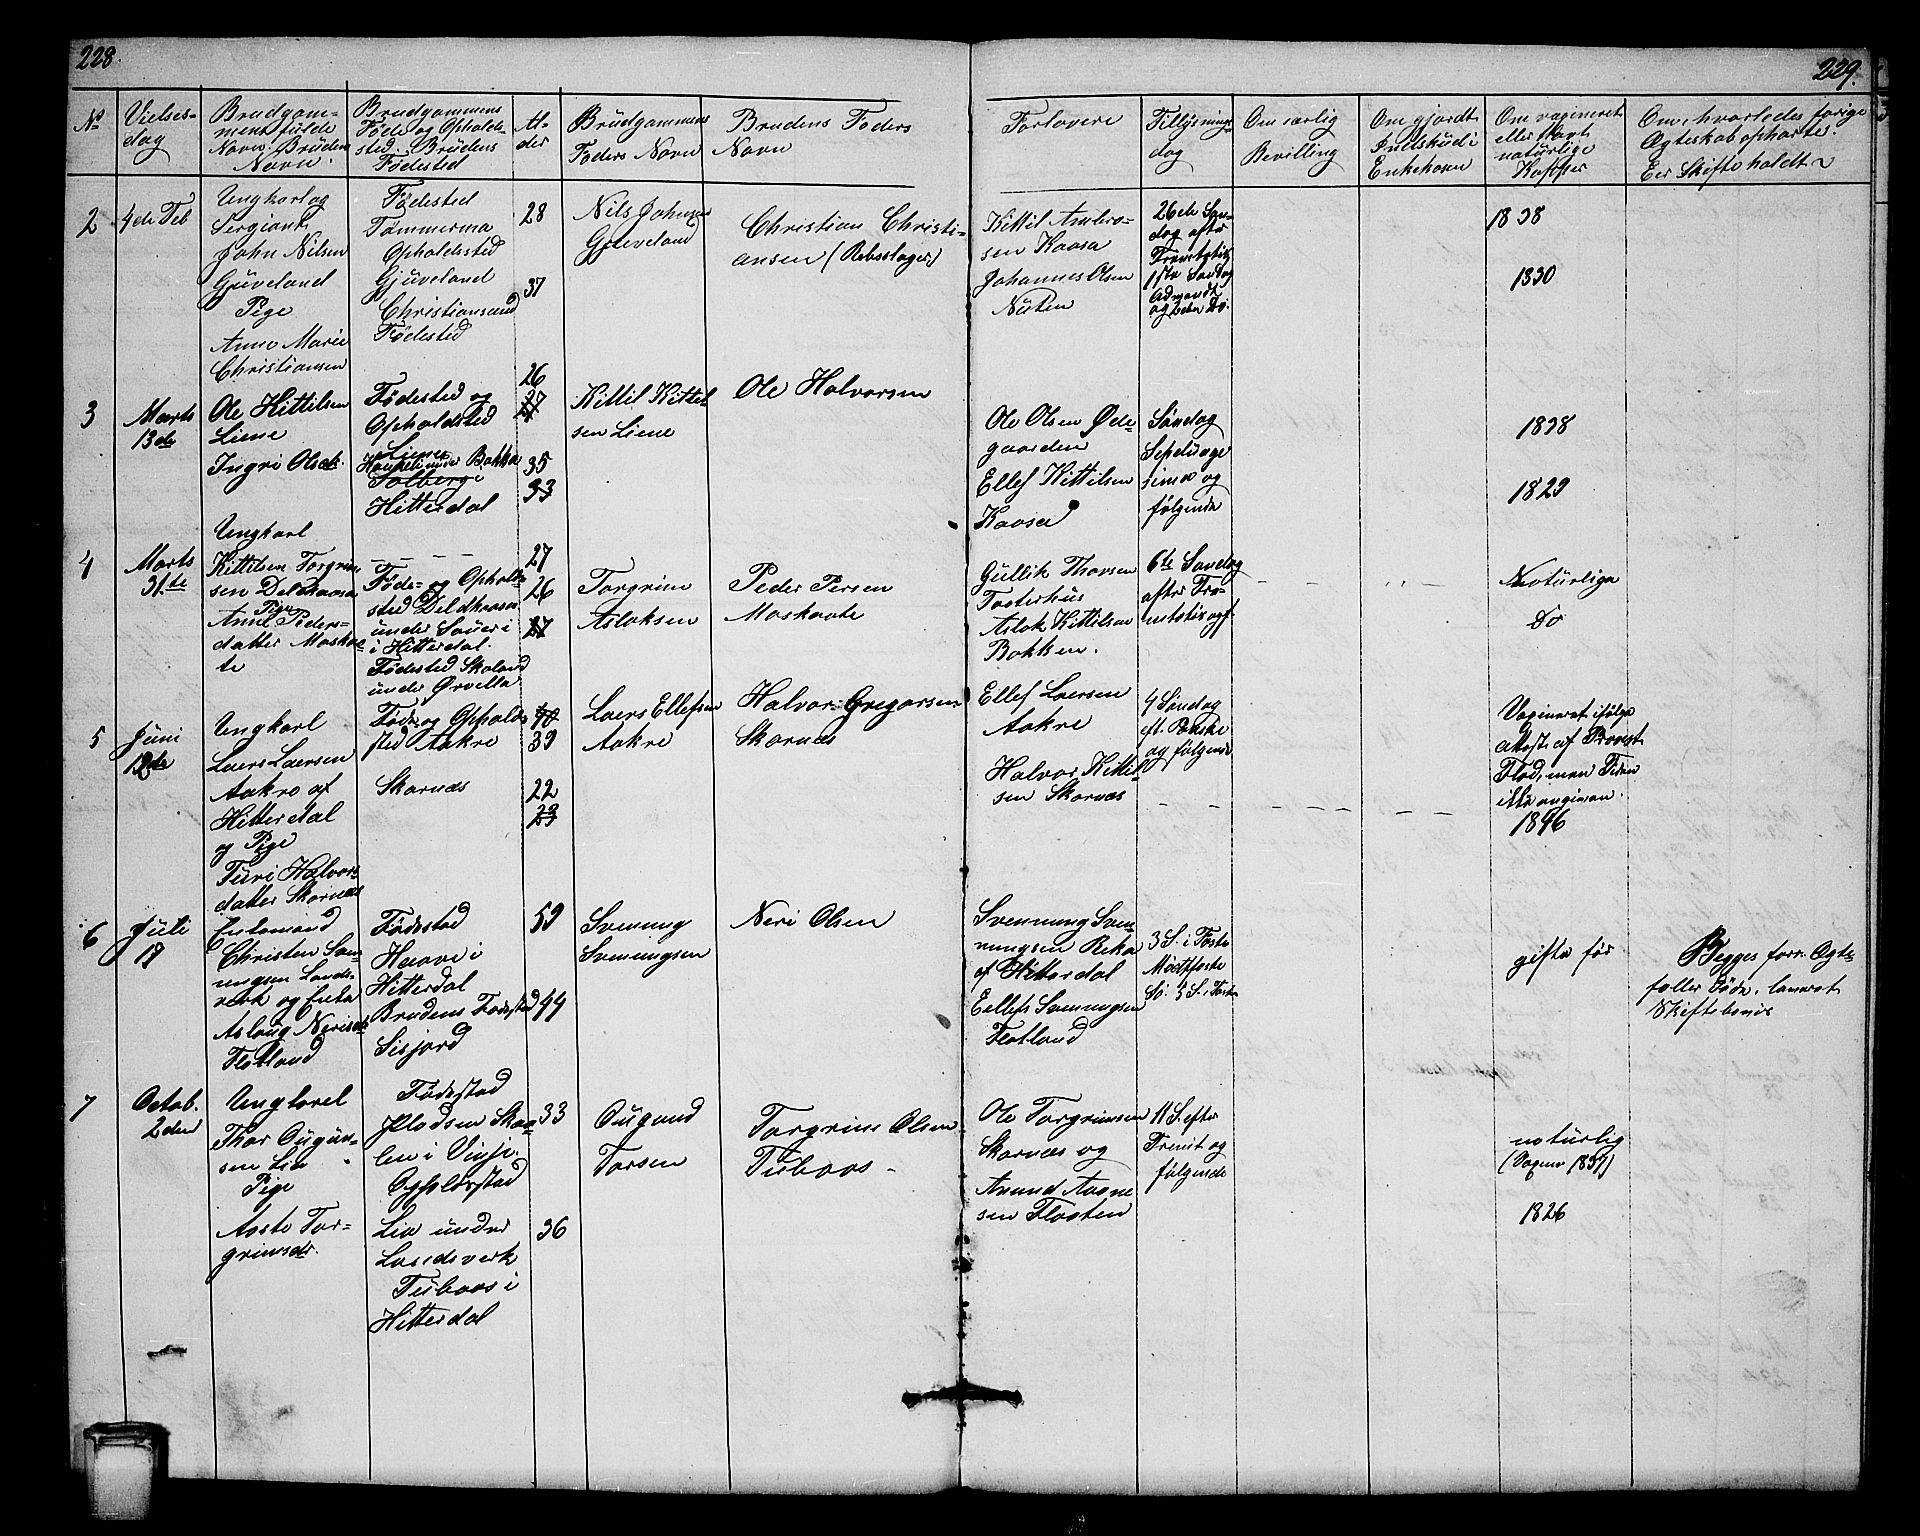 228.
229.
No
Vielses-
dag
Brudgom-
mens fulde
Navn. Brudens
Navn.
Brudgommens
Føde og Opholds-
sted. Brudens
Fødested
Al-
der
Brudgommens
Faders Navn
Brudens Faders
Navn
Forlovere
Tillysnings-
dag
Om særlig
Bevilling
Om gjordt
Indskud i
Enkekassen
Om vaxineret
eller havt
naturlige
Kopper
Om hvorledes forrige
Ægteskab ophørte.
Eer Skifte holdt
2
4de Feb
Ungkarl og
Sergiant
John Nilsen
Gjuveland
Pige
Anne Marie
Christiansen
Fødested
Tømmermo
Opholdssted
Gjuveland
Christiansand
Fødested
28
37
Nils Johnsen
Gjuveland
Christian Christi-
ansen (Rebslager)
Kittil Ambro-
sen Kaasa
Johannes Olsen
Nuten
26de Søn-
dag efter
Trinitatis
1ste Søndag
Advendt
og 2den Do.
1838
1830
3
Marts
13de
Ole Kittilsen
Liene
Ingri Olsdt.
Fødested og
Opholdsted
Liene
under Bakka
Solberg
Hitterdal
26
27
35
33
Kittil Kittel-
sen Liene
Ole Halvorsen
Ole Olsen Øde-
gaarden
Ellef Kittilsen
Kaasa
Søndag
Sepduage
sima og
følgende
1838
1829
4
Marts
31te
Ungkarl
Kittilsen Torgrim-
sen Deldkaasa
Pige
Anne Peders-
datter Moskaa-
te
Føde- og Opholds-
sted Deldkaasen
under Sauer i
i Hitterdal.
Fødested Skoland
under Ørvella
27
26
27
Torgrim
Aslaksen
Peder Persen
Moskaate
Gullik Thorsen
Tosterhus
Aslak Kittilsen
Bakken.
6te Søndag
efter Tri-
nitatis og f.
Naturlige
Do
5
Juni
12de
Ungkarl
Laers Laersen
Aakre af
Hitterdal
og Pige
Turi Halvors-
datter Skarnæs
Føde og Opholds-
sted Aakre
Skarnæs
40
39
22
23
Laers Ellefsen
Aakre
Halvor Gregarsen
Skarnæs
Ellef Laersen
Aakre
Halvor Kittil-
sen Skarnæs
4 Søndag
eft. Paaske
og følgende
Vaxineret ifølge
Attest af Provst
Flod, men Tiden
ikke angiven.
1846
6
Juli
17
Enkemand
Christen Søn-
ningsen Lands-
verk og Enke
Aslaug Nerisdt
Flotland
Fødestad
Haave i
Hitterdal
Brudens Fødestad
Sisjord
59
44
Svenung
Sveningsen
Neri Olsen
Svennung Sven-
nungsen Reka
af Hitterdal
Eellefs Svenungsen
Flotland
3 S. i Faste
Midtfaste
Sø. 5 S. i Faste
gifte før
Begges forr. Ægte-
fæller døde, leveret
Skiftebevis
7
Octob.
2den
Ungkarel
Thor Ougun-
sen Lia
Pige
Aaste Tor-
grimsdr.
Fødestad
Plodsen Skaa-
len i Vinje.
Opholdsstad
Lia under
Landsverk
Tuboos i
Hitterdal
33
36
Ougund
Torsen
Torgrim Olsen
Tuboos
Ole Torgrimsen
Skarnæs og
Anund Aavne
sen Flaaten
11 S. efter
Trinit og
følgende
naturlig
(Vaxin 1837)
1826